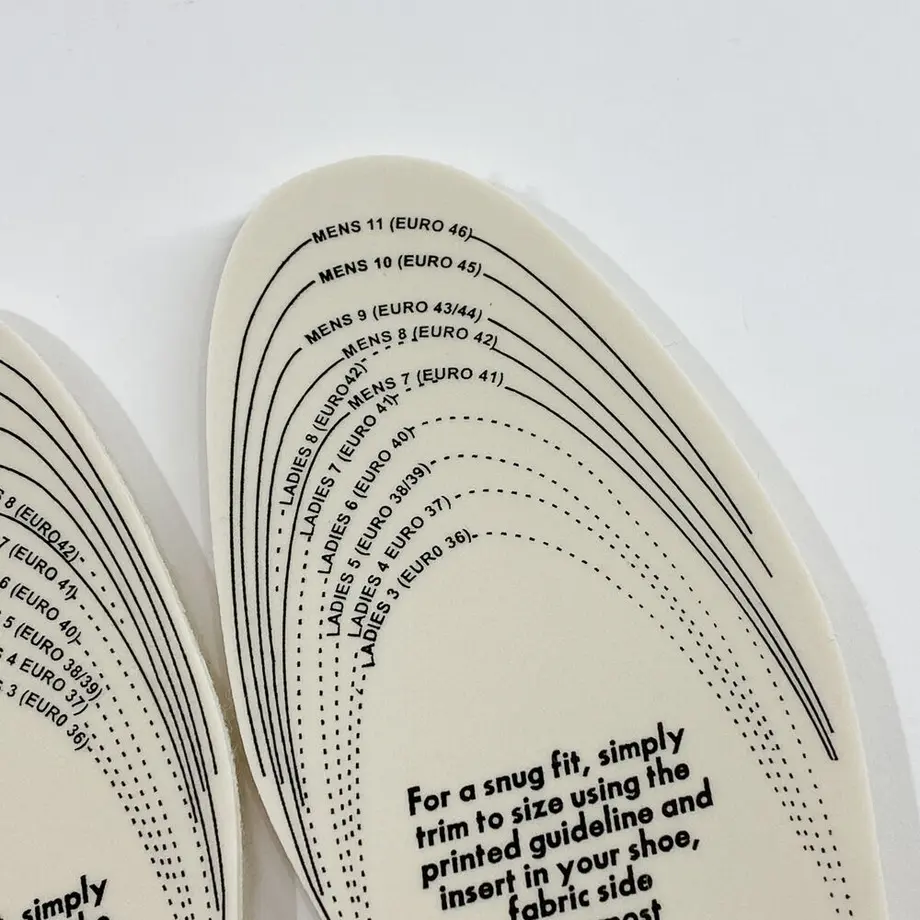 MENS 11 (EURO 46)
MENS 10 (EURO 45)
MENS 9 (EURO 43/44)
MENS 8 (EURO 42)
MENS 7 (EURO 41)
LADIES 8 (EURO42)
LADIES 7 (EURO 41)
LADIES 6 (EURO 40)
LADIES 5 (EURO 38/39)
LADIES 4 EURO 37)
LADIES 3 (EUR0 36)
For a snug fit, simply
trim to size using the
printed guideline and
insert in your shoe,
fabric side
8 (EURO42)
7 (EURO 41)
6 (EURO 40)
5 (EURO 38/39)
4 EURO 37)
3 (EUR0 36)
simply